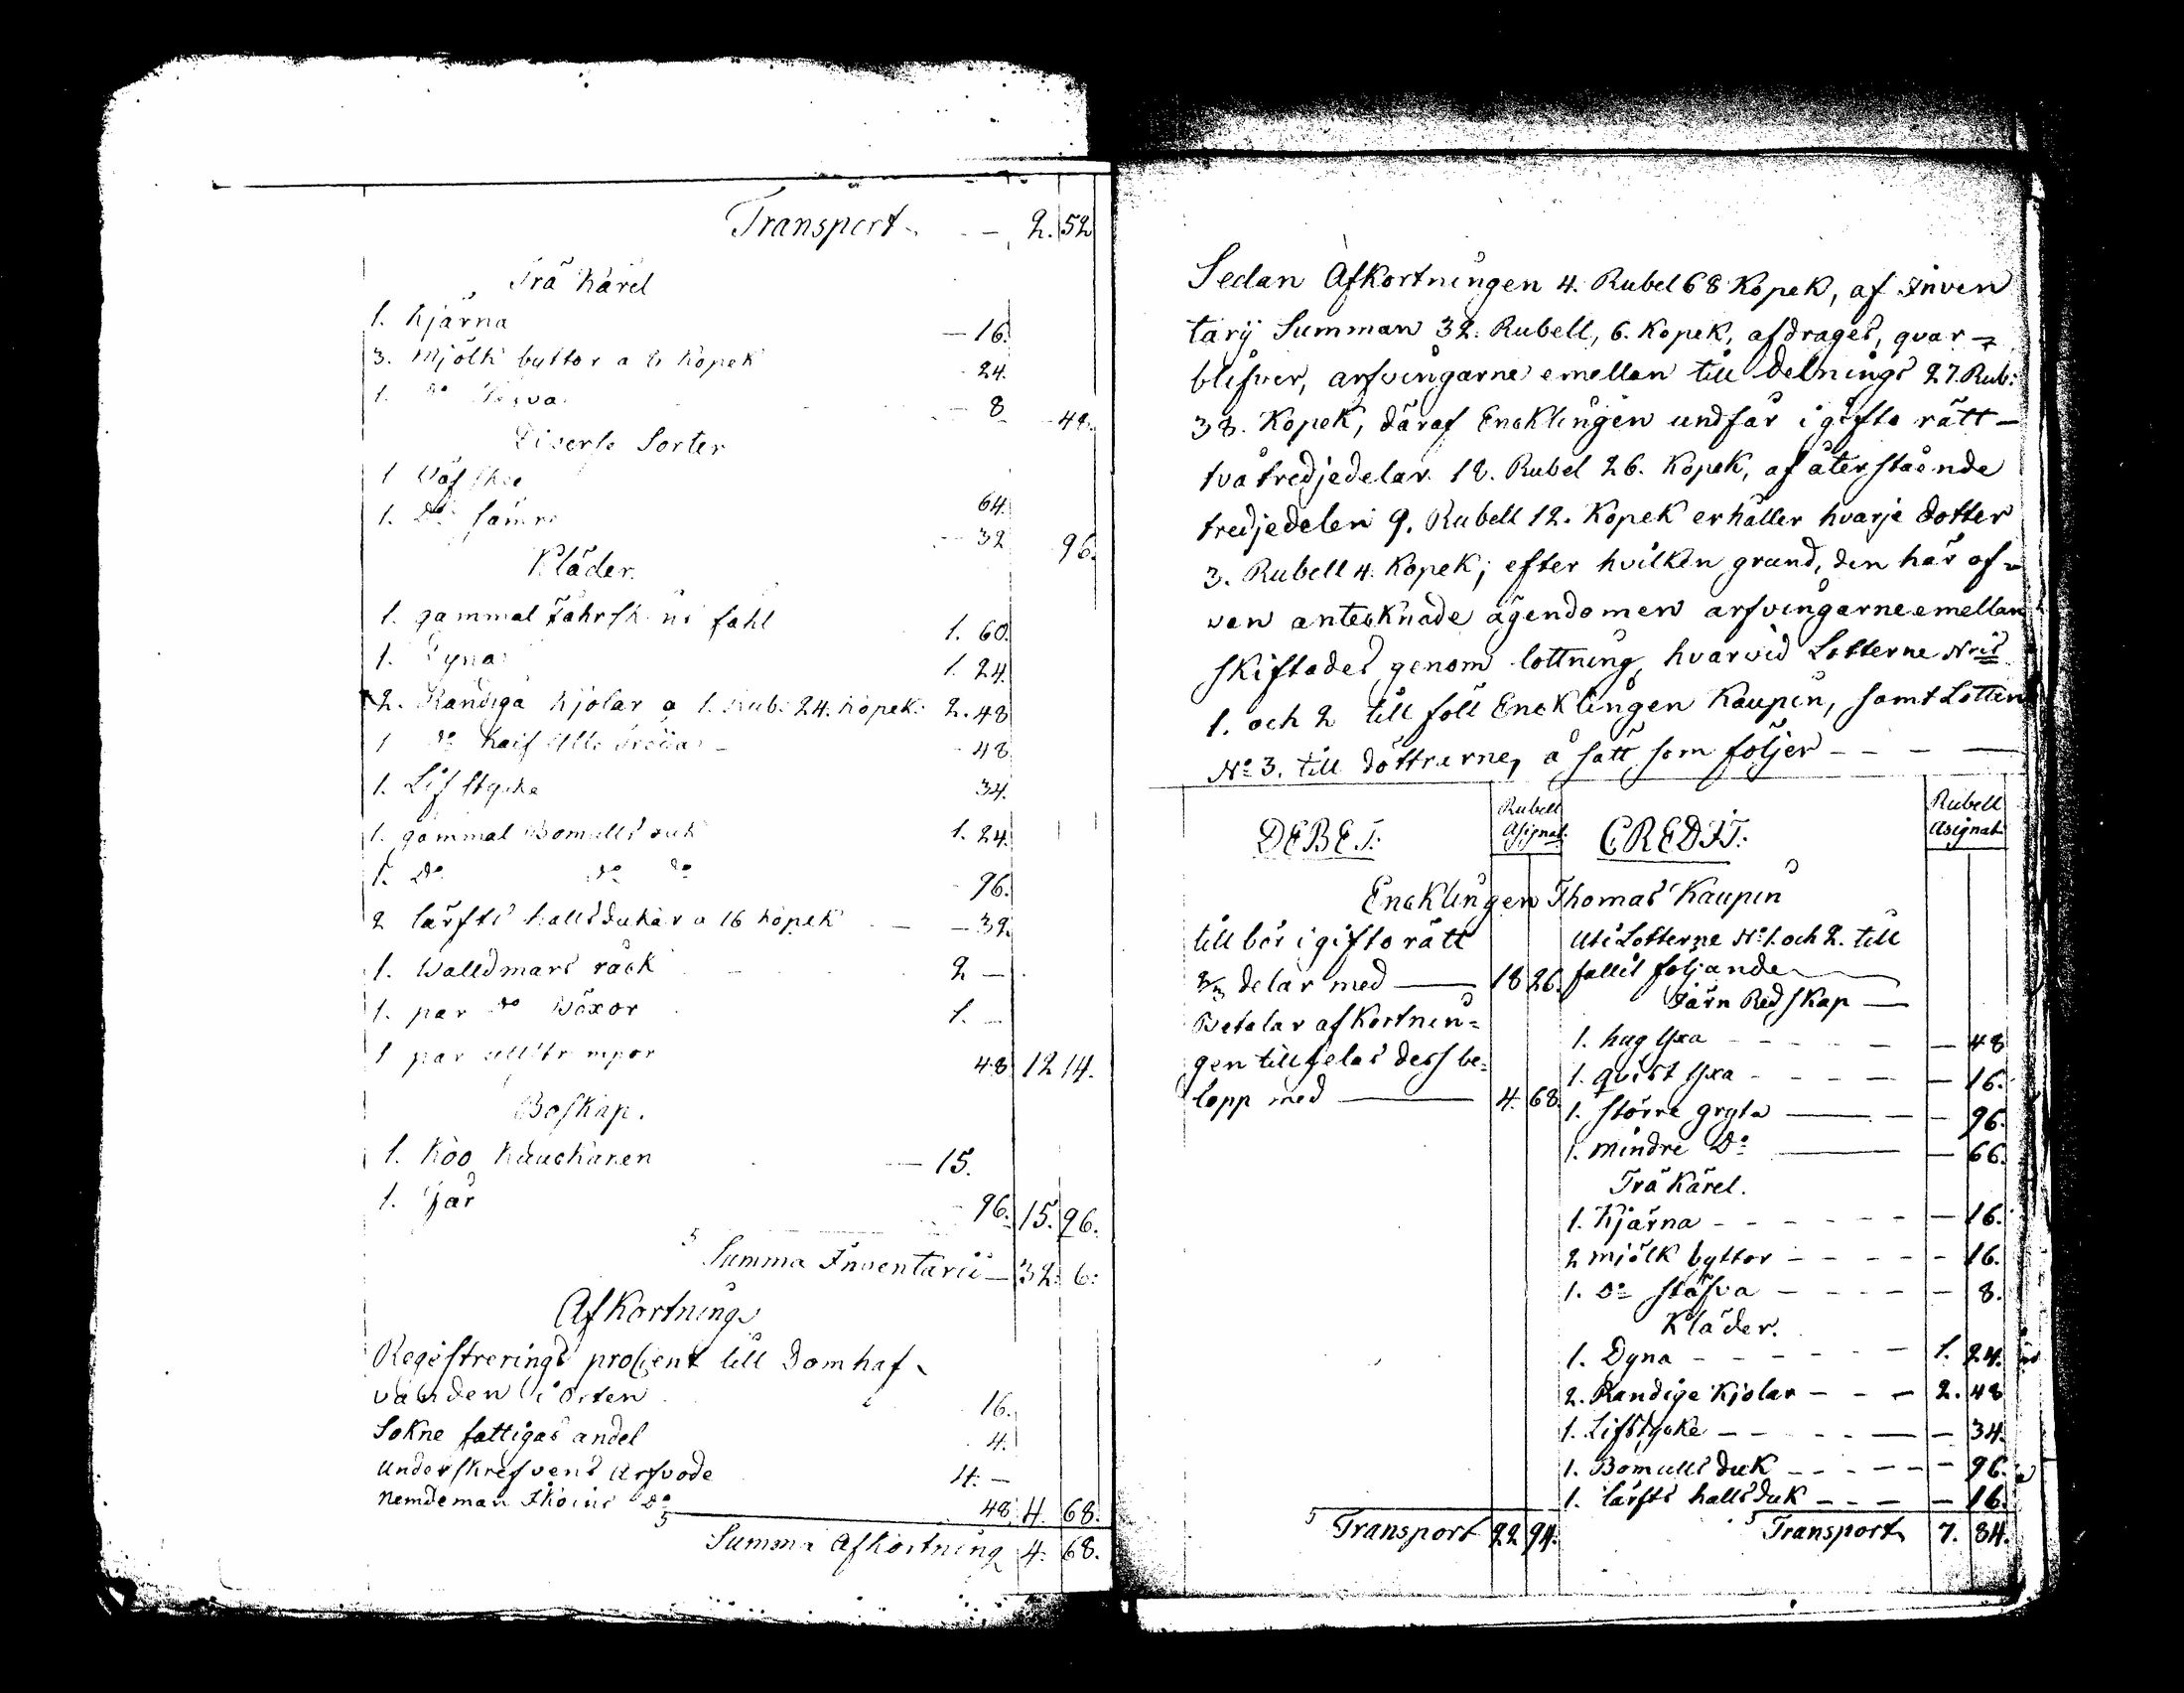 Transport - - 2. 52
Trä Kärel
1. Kjärna — 16.
3. Mjölk byttor a 8 Kopek 24.
1. Do Stäfva — 8 48.
Diverse Sorter
1 Wäf Sked 64.
1. Do 32 96.
Kläder.
1. gammal fahl 1. 60.
1. Dyna 1. 24.
2. Randiga Kjolar a 1. Rub. 24. Kopek. 2. 48
1 Do 48
1. Lif stycke 34.
1. gammal Bomulls duk 1. 24.
1. Do Do Do 96.
2 lärfts hallsdukar a 16 Kopek — 32.
1. Walldmars råck 2 —
1. par Do Böxor 1. —
1 par ullstrumpor 48 12 14.
Boskap.
1. Koo 15.
1. får 96. 15. 96.
Summa Inventarii — 32. 6.
Afkortning
Registrerings procent till Domhaf-
vanden i orten 16.
Sokne fattigas andel 4.
Underskrefvens Arfvode 4. —
Nemdeman Do 48 4. 68.
Summa Afkortning 4. 68.
Sedan Afkortningen 4. Rubel 68 Kopek, af Inven
tarij Summan 32. Rubell, 6. Kopek, afdrages, qvar-
blifver, arfvingarne emellan till Delnings 27. Rub:
38. Kopek, däraf Encklingen undfår i gifto rätt —
två tredjedelar 18. Rubel 26. Kopek, af återstående
tredjedelen 9. Rubell 12. Kopek erhåller hvarje dotter
3. Rubell 4. Kopek; efter hvilken grund, den här of-
van antecknade ägendomen arfvingarne emellan
skiftades genom lottning, hvarvid Lotterne Nris
1. och 2 till föll Encklingen Kaupin, samt Lotten
No 3. till döttrarne, å sätt som följer — — — —
DEBET: Rubell Asignat: CREDIT: Rubell Asignat:
Encklingen Thomas Kaupin
till bör i gifto rätt
2/3 delar med — 18 26.
Betalar afkortnin-
gen tillfelas dess be-
lopp med — 4. 68.
Uti Lotterne No 1. och 2. till
fallit följande
Järn Redskap —
1. hug Yxa — 48
1. qvist Yxa — 16.
1. större gryta — 96.
1. mindre Do — 66.
Trä Kärel.
1. Kjärna — 16.
2 mjölk byttor — 16.
1. Do stäfva — 8.
Kläder.
1. Dyna 1. 24.
2. Randige Kjolar 2. 48
1. Lifstycke — 34.
1. Bomulls duk — 96.
1. lärfts hallsduk — 16.
Transport 22 94. Transport 7. 84.